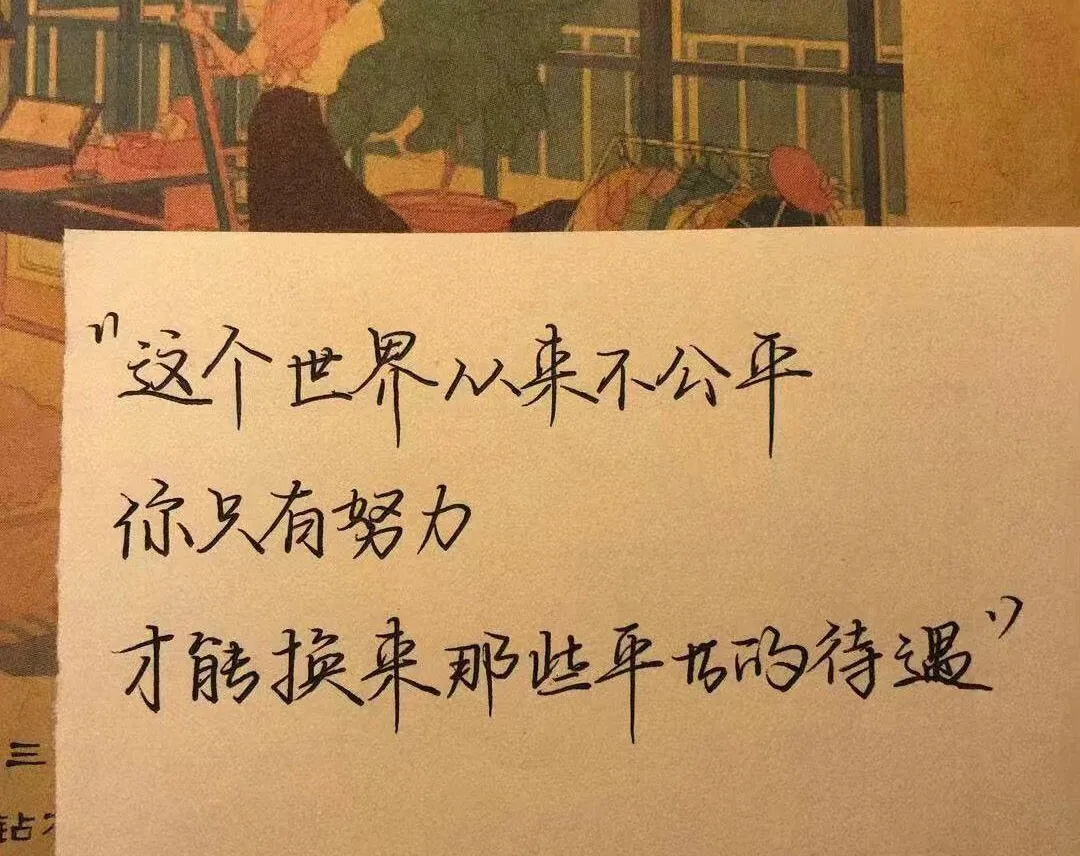 “这个世界从来不公平
你只有努力
才能换来那些平等的待遇”
三
钻